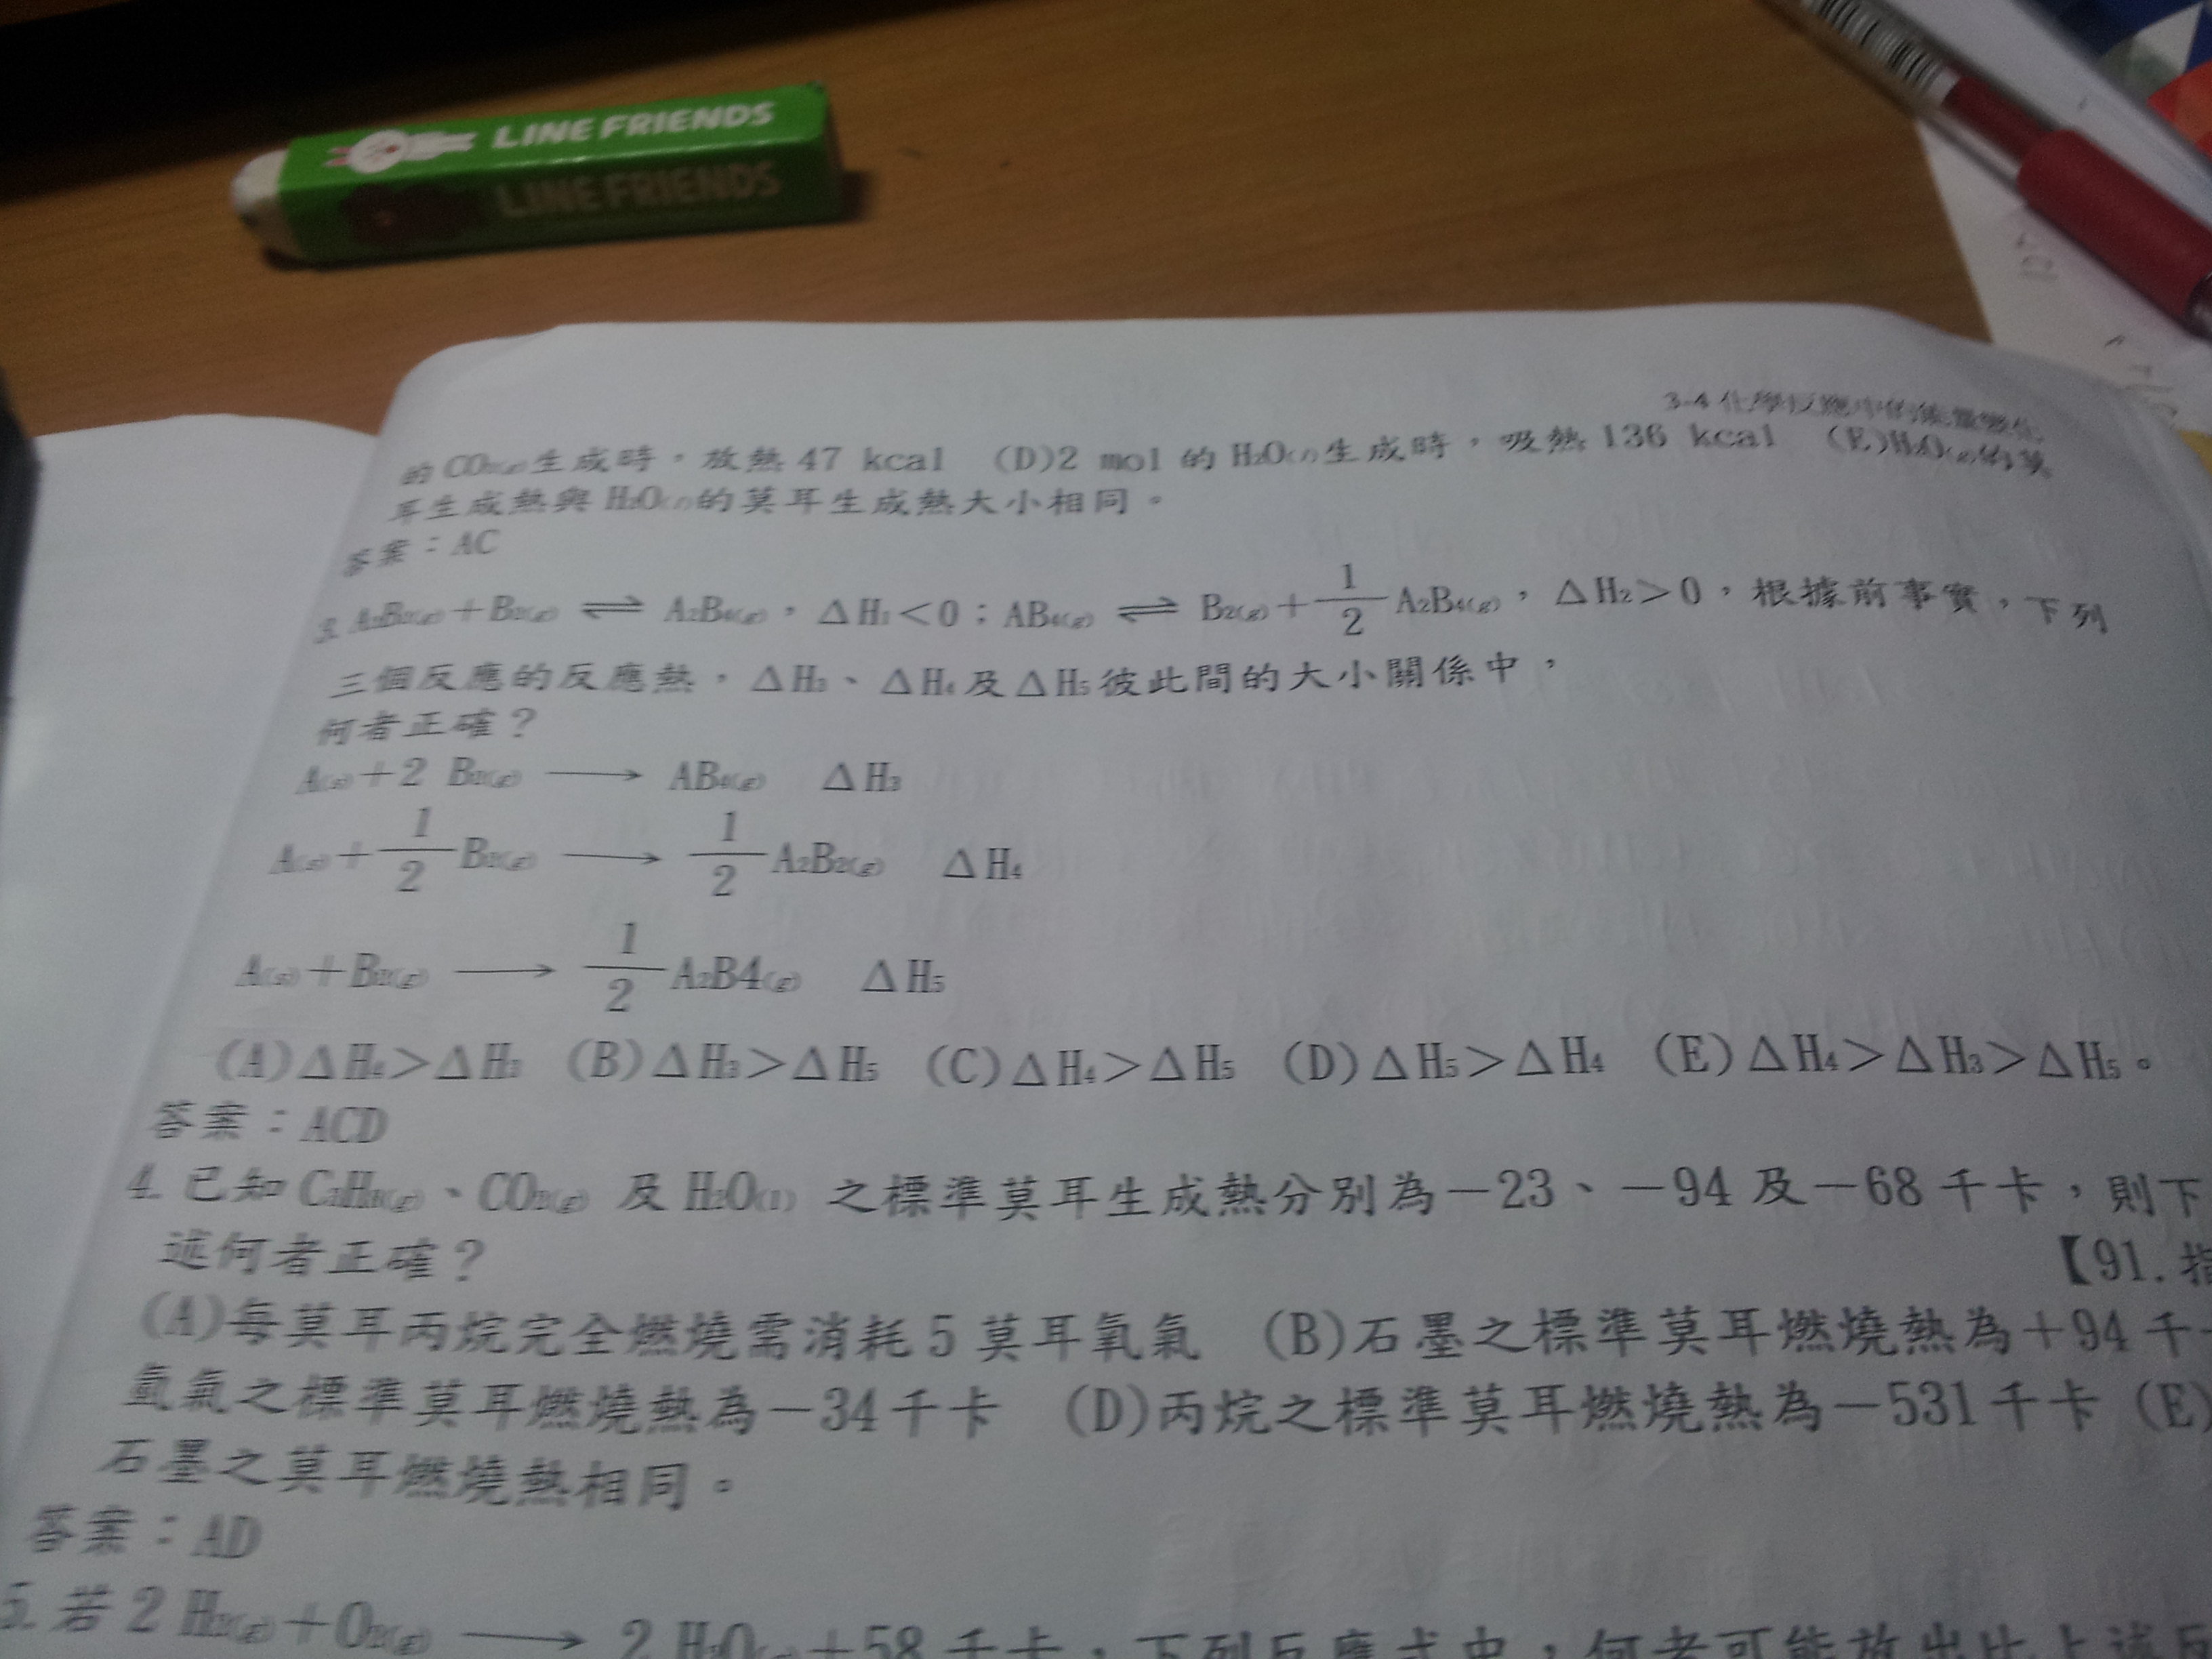 LINE FRIENDS
LINE FRIENDS
3-4 化學反應中的能量變化
的 CO₂(g)生成時，放熱 47 kcal (D)2 mol 的 H₂O(l)生成時，吸熱 136 kcal (E)H₂O(g)的莫
耳生成熱與 H₂O(l)的莫耳生成熱大小相同。
答案：AC
3. A₂B₂(g)+B₂(g) ⇌ A₂B₄(g)，ΔH₁<0；AB₄(g) ⇌ B₂(g)+1/2 A₂B₄(g)，ΔH₂>0，根據前事實，下列
三個反應的反應熱，ΔH₃、ΔH₄及ΔH₅彼此間的大小關係中，
何者正確？
A(s)+2 B₂(g) ⟶ AB₄(g) ΔH₃
A(s)+1/2 B₂(g) ⟶ 1/2 A₂B₂(g) ΔH₄
A(s)+B₂(g) ⟶ 1/2 A₂B4(g) ΔH₅
(A)ΔH₄>ΔH₃ (B)ΔH₃>ΔH₅ (C)ΔH₄>ΔH₅ (D)ΔH₅>ΔH₄ (E)ΔH₄>ΔH₃>ΔH₅。
答案：ACD
4. 已知 C₃H₈(g)、CO₂(g) 及 H₂O(l) 之標準莫耳生成熱分別為－23、－94 及－68 千卡，則下
述何者正確？ 【91.指
(A)每莫耳丙烷完全燃燒需消耗 5 莫耳氧氣 (B)石墨之標準莫耳燃燒熱為＋94 千
氫氣之標準莫耳燃燒熱為－34 千卡 (D)丙烷之標準莫耳燃燒熱為－531 千卡 (E)
石墨之莫耳燃燒熱相同。
答案：AD
5. 若 2 H₂(g)+O₂(g) ⟶ 2 H₂O +58 千卡，下列反應式中，何者可能放出比上述反